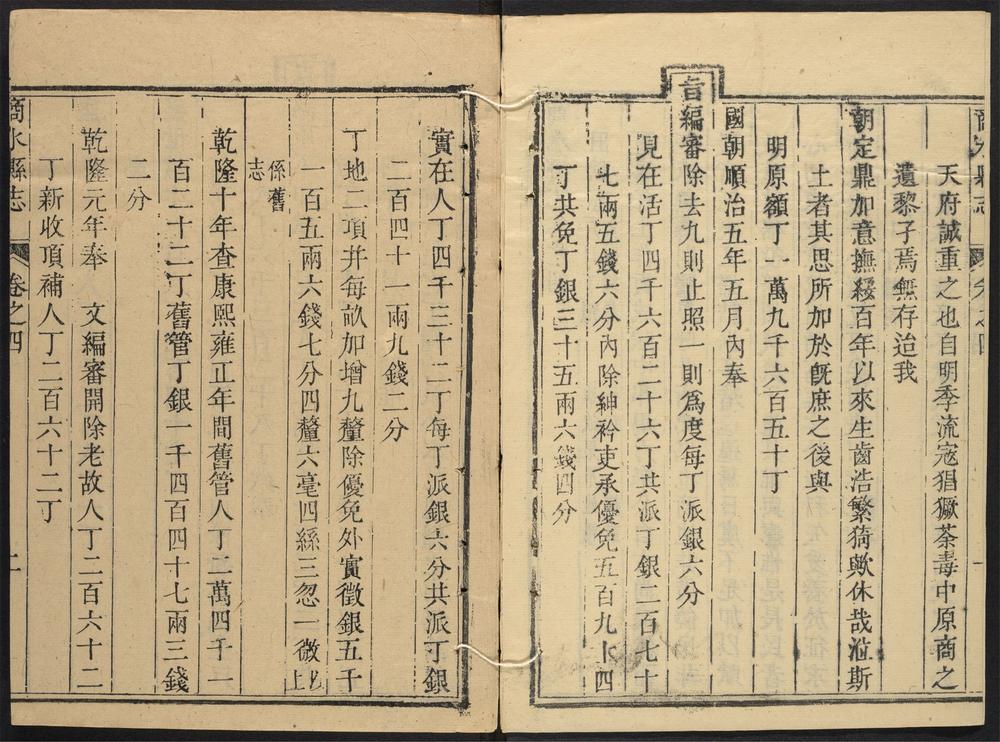 商水縣志
卷之四
天府誠重之也自明季流寇猖獗荼毒中原商之
遺黎子焉無存迨我
朝定鼎加意撫綏百年以來生齒浩繁猗歟休哉涖斯
土者其思所加於旣庶之後與
明原額丁一萬九千六百五十丁
國朝順治五年五月內奉
旨編審除去九則止照一則爲度每丁派銀六分
見在活丁四千六百二十六丁共派丁銀二百七十
七兩五錢六分內除紳衿吏承優免五百九十四
丁共免丁銀三十五兩六錢四分
實在人丁四千三十二丁每丁派銀六分共派丁銀
二百四十一兩九錢二分
丁地二項并每畝加增九釐除優免外實徵銀五千
一百五兩六錢七分四釐六毫四絲三忽一微以上
係舊
志
乾隆十年查康熙雍正年間舊管人丁二萬四千一
百二十二丁舊管丁銀一千四百四十七兩三錢
二分
乾隆元年奉 文編審開除老故人丁二百六十二
丁新收頂補人丁二百六十二丁
商水縣志
卷之四
二